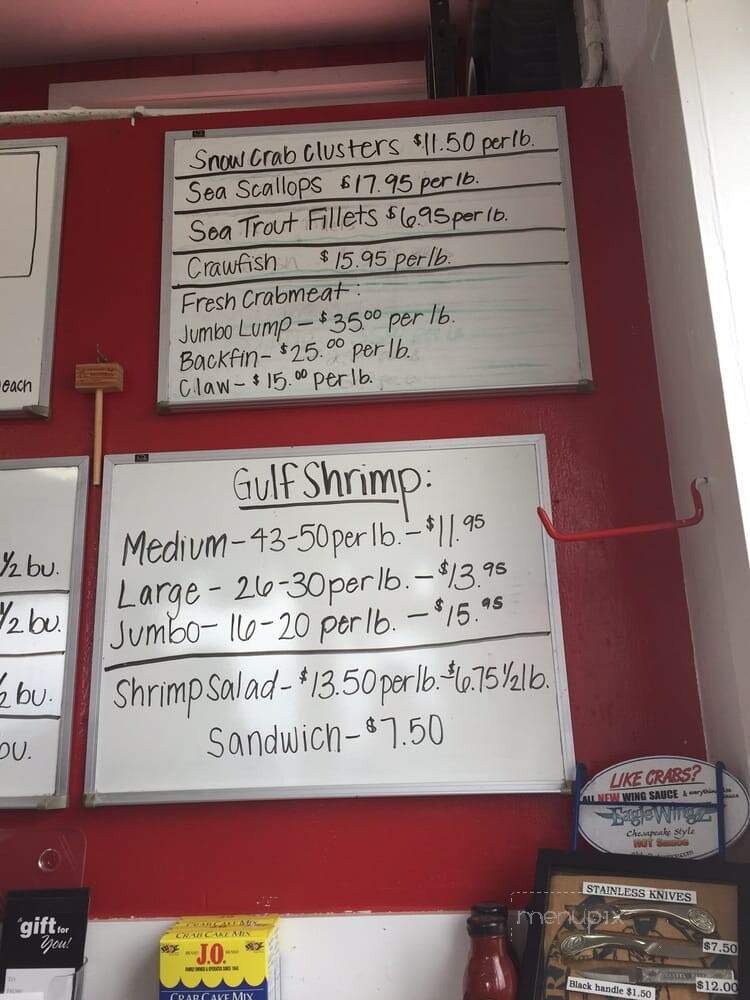 Snow Crab Clusters $11.50 per lb.
Sea Scallops $17.95 per lb.
Sea Trout Fillets $6.95 per lb.
Crawfish $15.95 per lb.
Fresh Crabmeat:
Jumbo Lump - $35.00 per lb.
Backfin - $25.00 per lb.
Claw - $15.00 per lb.
each
Gulf Shrimp:
Medium - 43-50 per lb. - $11.95
Large - 26-30 per lb. - $13.95
Jumbo - 16-20 per lb. - $15.95
Shrimp Salad - $13.50 per lb. - $6.75 1/2 lb.
Sandwich - $7.50
1/2 bu.
1/2 bu.
1/2 bu.
bu.
LIKE CRABS?
ALL NEW WING SAUCE & everything
EagleWingz
Chesapeake Style
HOT Sauce
STAINLESS KNIVES
$7.50
Black handle $1.50
$12.00
menupix
a gift for
you!
CRAB CAKE MIX
J.O.
CRAB CAKE MIX